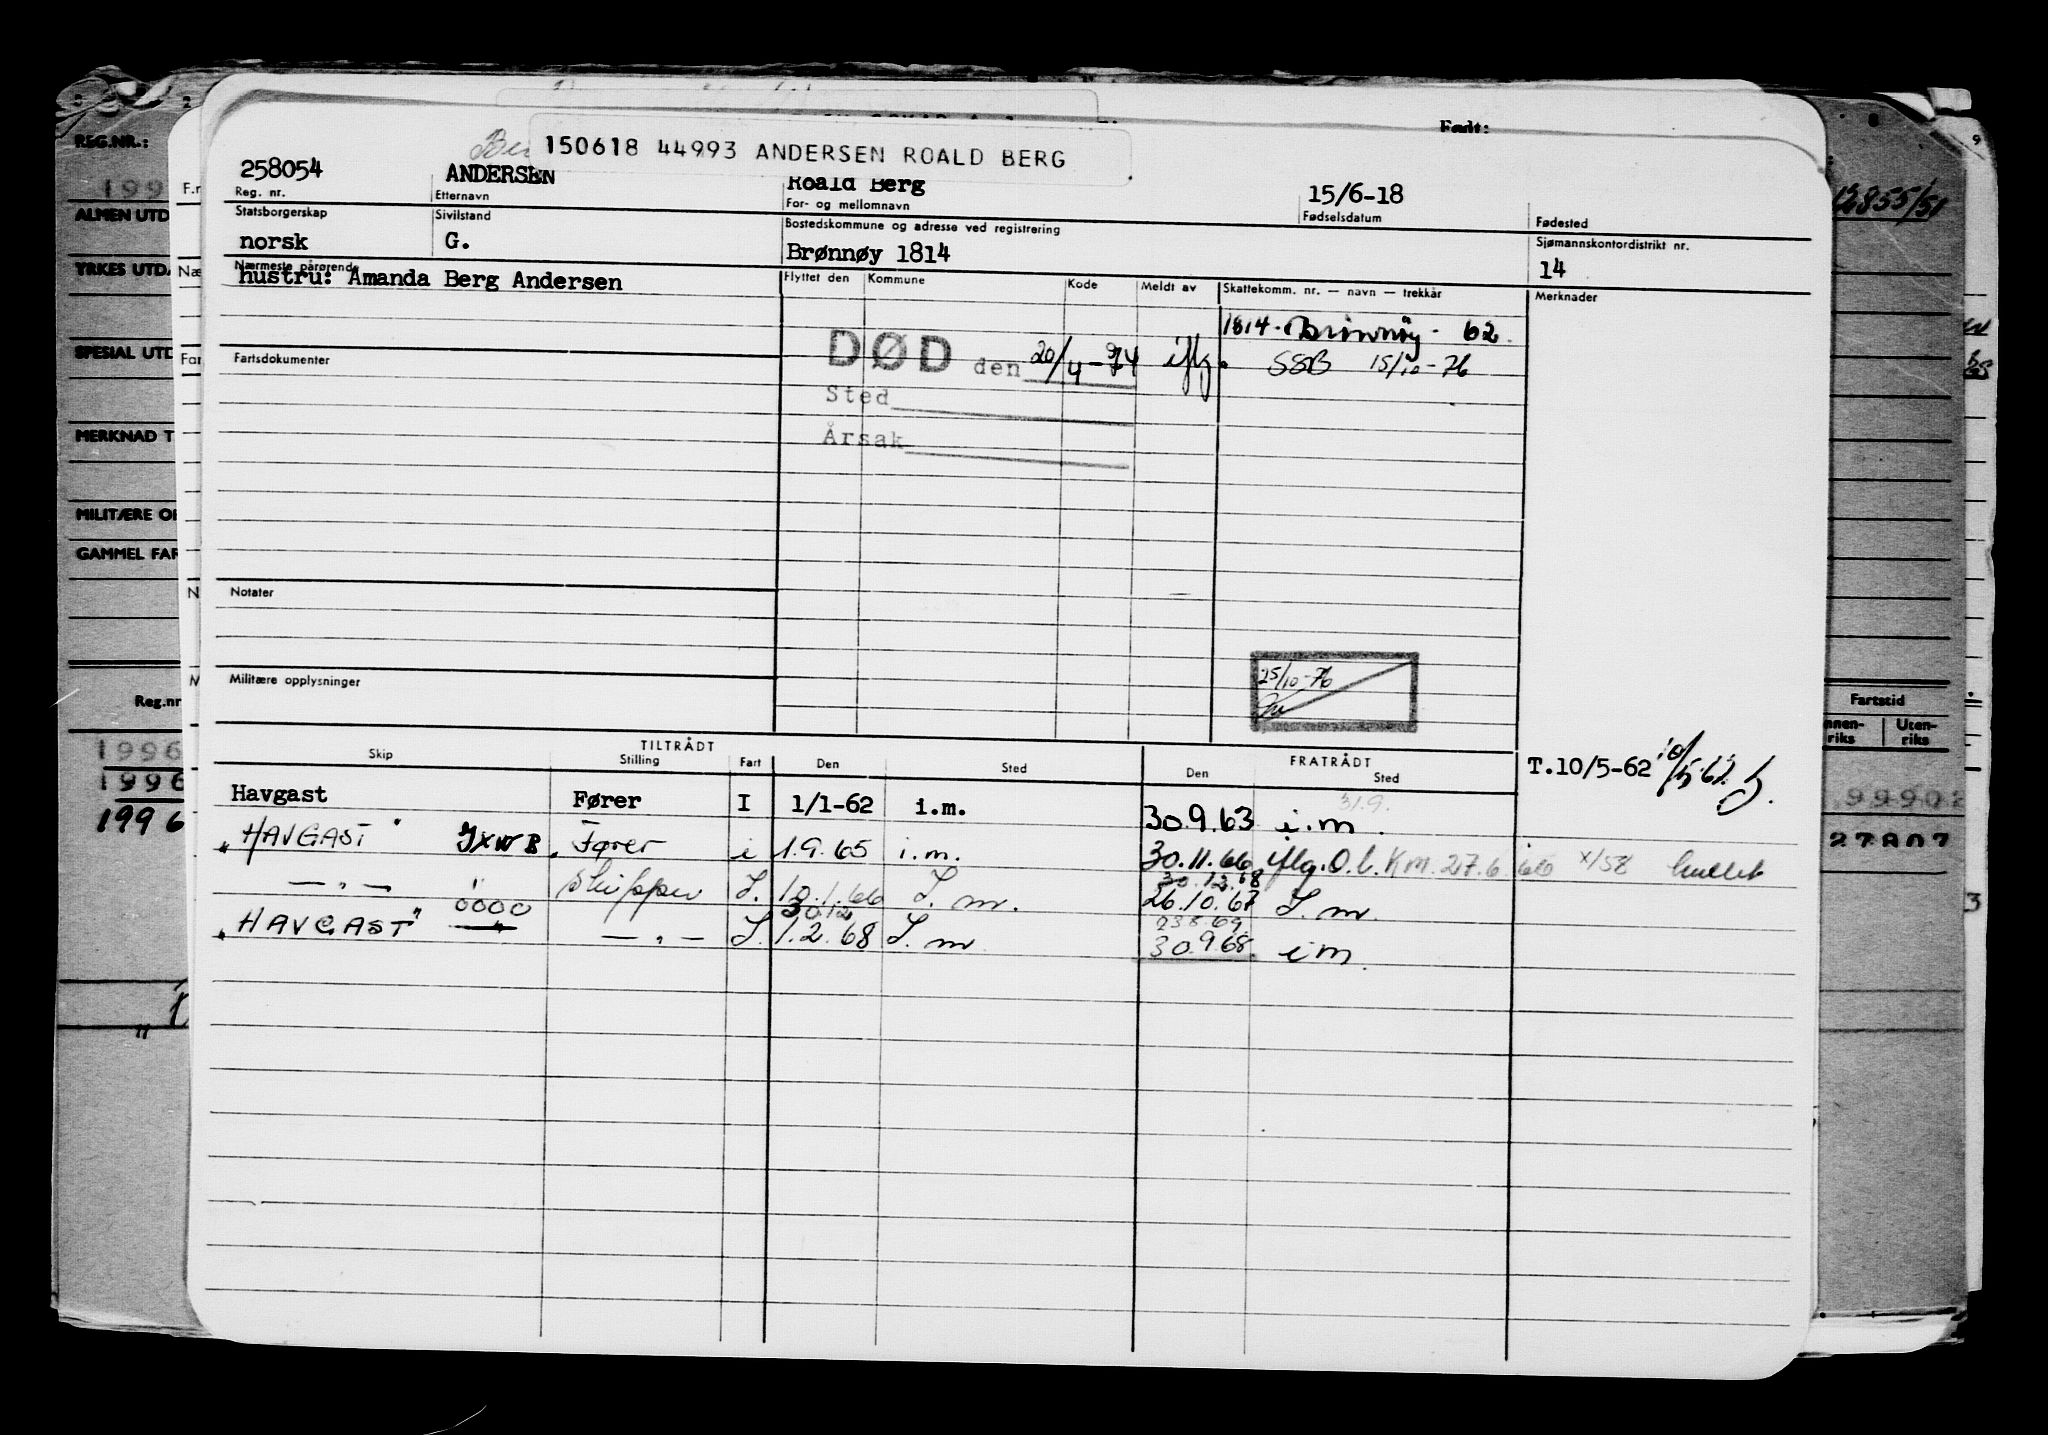 Født:
150618 44993 ANDERSEN ROALD BERG
258054 ANDERSEN Roald Berg 15/6-18
Reg. nr. Etternavn For- og mellomnavn Fødselsdatum Fødested
Statsborgerskap Sivilstand Bostedskommune og adresse ved registrering Sjømannskontordistrikt nr.
norsk G. Brønnøy 1814 14
Nærmeste pårørende Flyttet den Kommune Kode Meldt av Skattekomm. nr. — navn — trekkår Merknader
hustru: Amanda Berg Andersen
1814 - Brønnøy - 62
Fartsdokumenter
DØD den 20/4-74 iflg. SSB 15/10-76
Sted
Årsak
Notater
Militære opplysninger
25/10-76
TILTRÅDT FRATRÅDT
Skip Stilling Fart Den Sted Den Sted
T.10/5-62 10/5-62
Havgast Fører I 1/1-62 i.m. 30.9.63 i.m.
31.9.
"HAVGAST" JXWB Fører i 1.9.65 i.m. 30.11.66 iflg. O.l. Km. 27.6.66 x/58
30.12.68
— " — Skipper I. 10.1.66 I.m. 26.10.67 I.m.
30.12
"HAVGAST" 0000 — " — I. 1.2.68 I.m. 30.9.68 im.
REG.NR.:
199
ALMEN UTD
YRKES UTDA
SPESIAL UTD
MERKNAD T
MILITÆRE OP
GAMMEL FAR
Reg.nr
1996
1996
1996
12855/51
Fartstid
nnen-riks Uten-riks
99902
27807